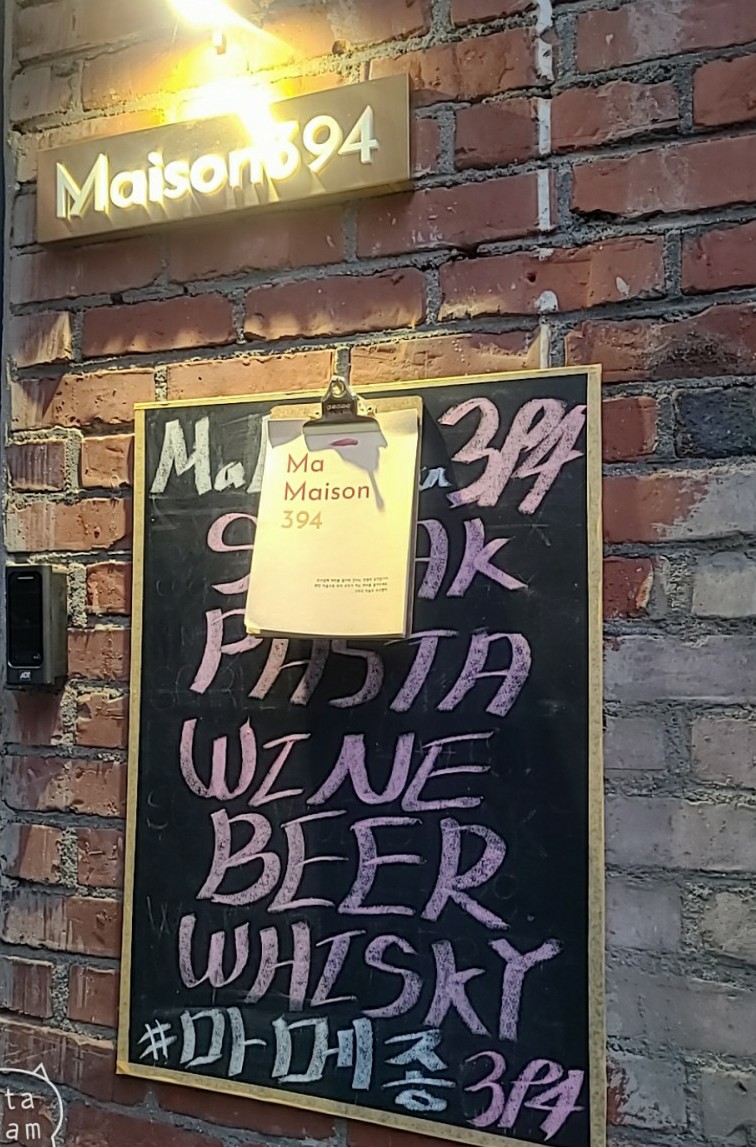 Maison394
Ma
Maison
394
394
PASTA
WINE
BEER
WHISKY
#마메종394
ta
am